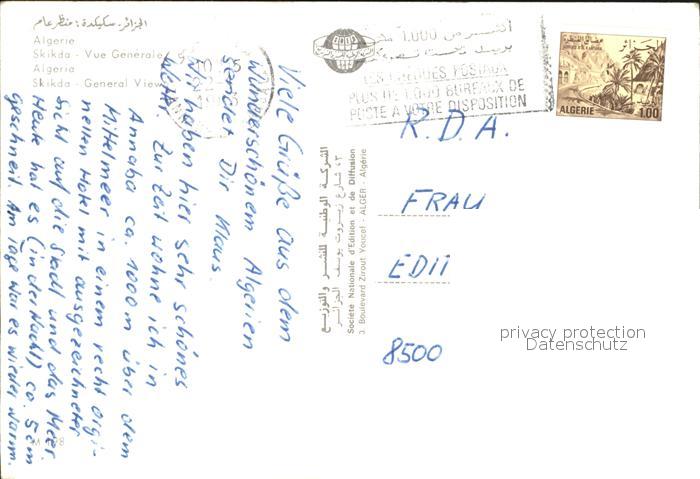 الجزائر. سكيكدة: منظر عام
Algerie
Skikda - Vue Generale
Algeria
Skikda - General View
Viele Grüße aus dem
wunderschönem Algerien
sendet Dir Klaus.
Wir haben hier sehr schönes
Wetter. Zur Zeit wohne ich in
Annaba ca. 1000 m über dem
Mittelmeer in einem recht origi-
nellen Hotel mit ausgezeichneter
Sicht auf die Stadt und das Meer.
Heute hat es (in der Nacht) ca. 5 cm
geschneit. Am Tage war es wieder warm.
الشركة الوطنية للنشر والتوزيع
٣، شارع زيروت يوسف الجزائر
Société Nationale d'Edition et de Diffusion
3, Boulevard Zirout Youcef - ALGER - Algérie
أكثر من 1.000
بريد تحت
LES CHEQUES POSTAUX
PLUS DE 1.000 BUREAUX DE
POSTE A VOTRE DISPOSITION
الجزائر
ALGERIE 1.00
R.D.A.
FRAU
EDII
8500
privacy protection
Datenschutz